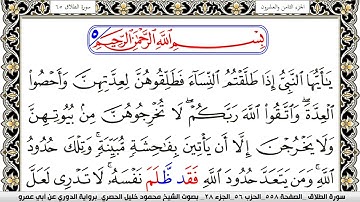 الجزء الثامن والعشرون
سورة الطلاق ٦٥
بِسْمِ اللَّهِ الرَّحْمَٰنِ الرَّحِيمِ
يَٰٓأَيُّهَا النَّبِيُّ إِذَا طَلَّقْتُمُ النِّسَآءَ فَطَلِّقُوهُنَّ لِعِدَّتِهِنَّ وَأَحْصُوا
الْعِدَّةَ وَاتَّقُوا اللَّهَ رَبَّكُمْ لَا تُخْرِجُوهُنَّ مِنْ بُيُوتِهِنَّ
وَلَا يَخْرُجْنَ إِلَّا أَن يَأْتِينَ بِفَٰحِشَةٍ مُّبَيِّنَةٍ وَتِلْكَ حُدُودُ
اللَّهِ وَمَن يَتَعَدَّ حُدُودَ اللَّهِ فَقَد ظَّلَمَ نَفْسَهُ لَا تَدْرِى لَعَلَّ
سورة الطلاق .. الصفحة ٥٥٨ .. الحزب ٥٦ .. الجزء ٢٨ .. بصوت الشيخ محمود خليل الحصري .. برواية الدوري عن أبي عمرو